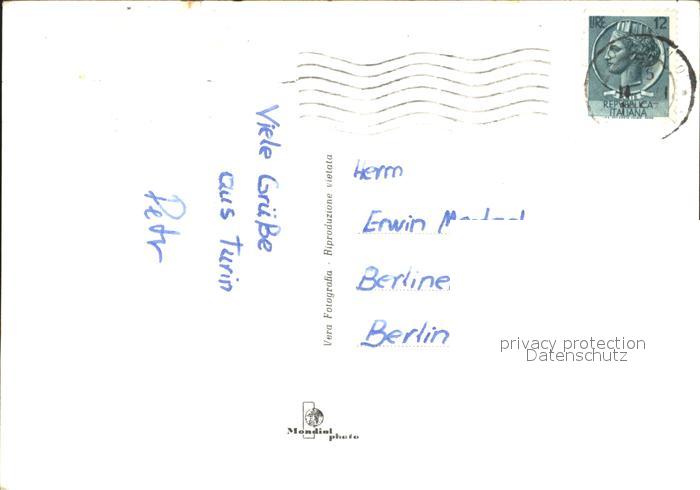 LIRE 12
REPVBBLICA
ITALIANA
Viele Grüße
aus Turin
Petr
Vera Fotografia - Riproduzione vietata
Herrn
Erwin
Berline
Berlin
privacy protection
Datenschutz
Mondial
photo